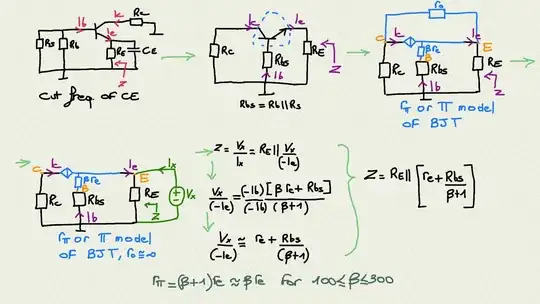 Ib
Ic
Rc
Rs
Rb
Ie
RE
CE
Z
Cut freq. of CE
Ic
Ie
Rc
Rbs
RE
Ib
Z
Rbs = Rb || Rs
ro
C
Ic
Ie
E
βre
B
Rc
Rbs
RE
Ib
Z
rπ or π model
of BJT
C
Ic
Ie
E
Ix
βre
B
Rc
Rbs
RE
Vx
Z
Ib
rπ or π model
of BJT, ro ≅ ∞
Z = Vx/Ix = RE || Vx/(-Ie)
Vx/(-Ie) = (-Ib)[βre + Rbs]/(-Ib)(β+1)
Vx/(-Ie) ≅ re + Rbs/(β+1)
Z = RE || [re + Rbs/β+1]
rπ = (β+1)re ≈ βre for 100 ≤ β ≤ 300